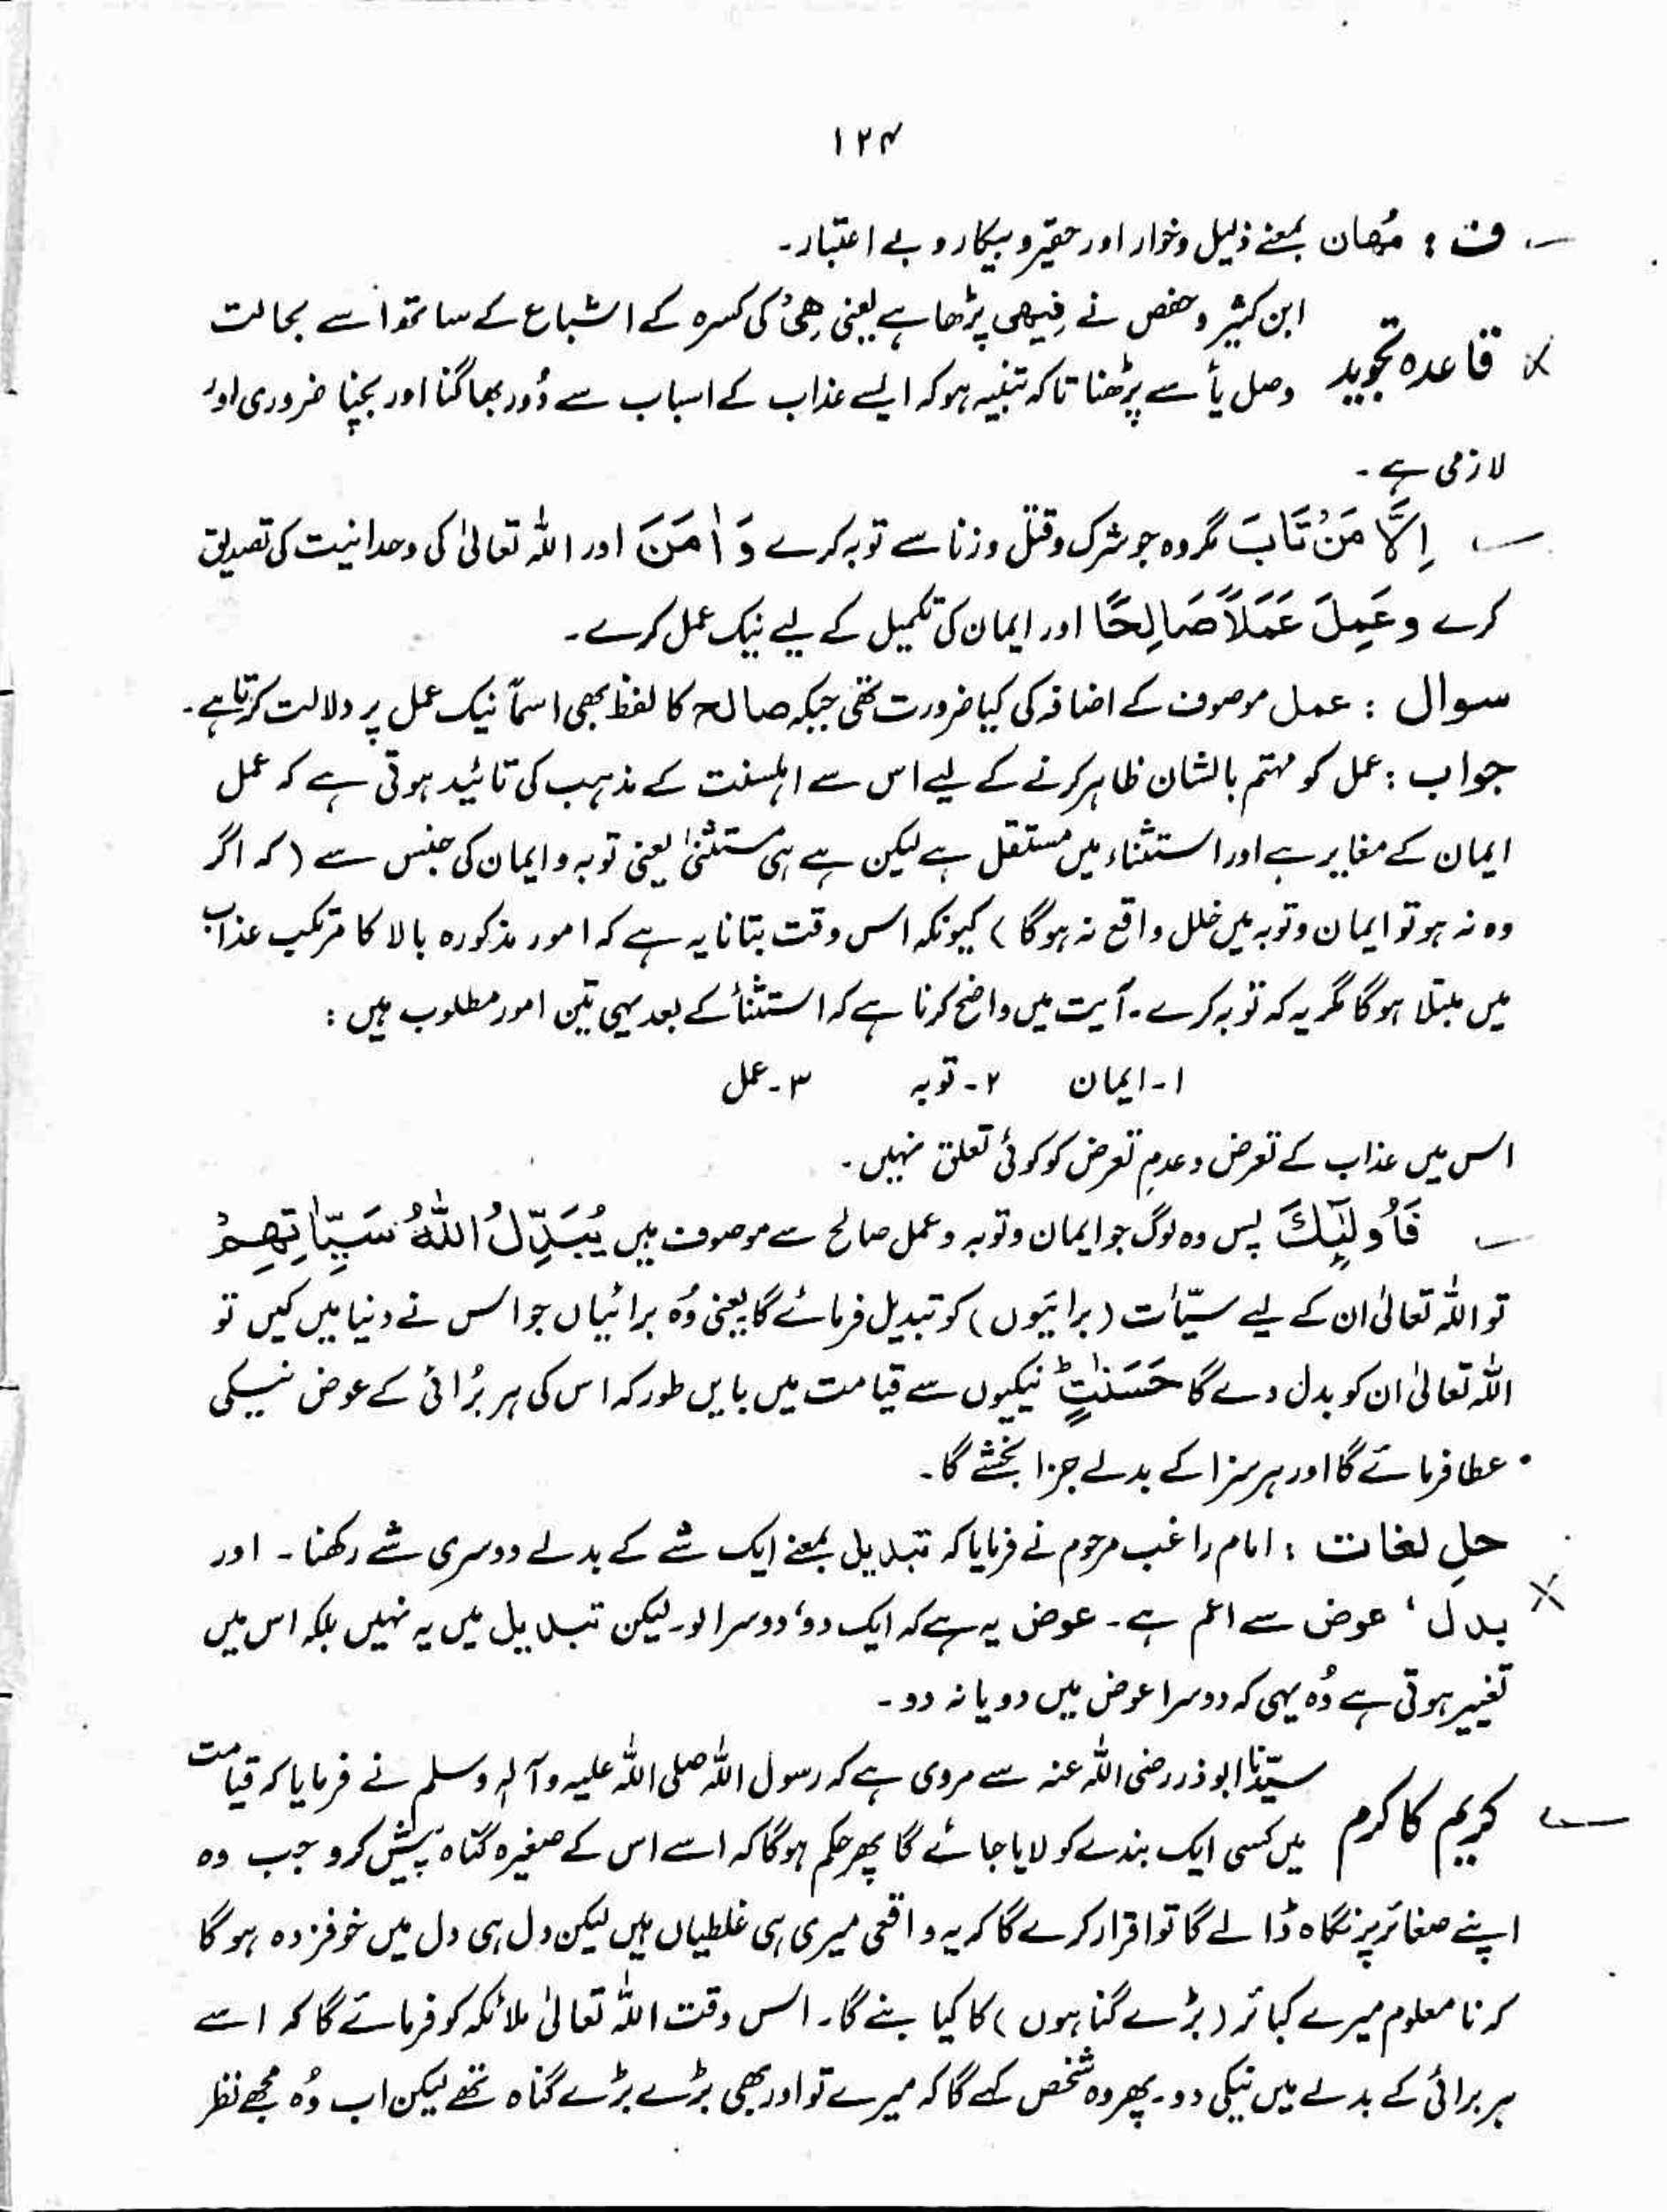 ۱۲۴
ف : مُھان بمعنے ذلیل وخوار اور حقیر و بیکار و بے اعتبار۔
قاعدہ تجوید
ابن کثیر و حفص نے فِیْھِی پڑھا ہے یعنی ھِیْ کی کسرہ کے اشباع کے ساتھ اسے بحالت
وصل یأ سے پڑھنا تاکہ تنبیہ ہو کہ ایسے عذاب کے اسباب سے دُور بھاگنا اور بچنا ضروری اور
لازمی ہے۔
اِلَّا مَنْ تَابَ مگر وہ جو شرک و قتل و زنا سے توبہ کرے وَ اٰمَنَ اور اللہ تعالیٰ کی وحدانیت کی تصدیق
کرے و عَمِلَ عَمَلًا صَالِحًا اور ایمان کی تکمیل کے لیے نیک عمل کرے۔
سوال : عمل موصوف کے اضافہ کی کیا ضرورت تھی جبکہ صالح کا لفظ بھی اسماً نیک عمل پر دلالت کرتا ہے۔
جواب : عمل کو مہتم بالشان ظاہر کرنے کے لیے اس سے اہلسنت کے مذہب کی تائید ہوتی ہے کہ عمل
ایمان کے مغایر ہے اور استثناء میں مستقل ہے لیکن ہے ہی مستثنیٰ یعنی توبہ و ایمان کی جنس سے (کہ اگر
وہ نہ ہو تو ایمان و توبہ میں خلل واقع نہ ہوگا) کیونکہ اس وقت بتانا یہ ہے کہ امور مذکورہ بالا کا مرتکب عذاب
میں مبتلا ہوگا مگر یہ کہ توبہ کرے۔ آیت میں واضح کرنا ہے کہ استثنأ کے بعد یہی تین امور مطلوب ہیں :
۱۔ ایمان ۲۔ توبہ ۳۔ عمل
اس میں عذاب کے تعرض و عدمِ تعرض کو کوئی تعلق نہیں۔
فَاُولٰٓئِكَ پس وہ لوگ جو ایمان و توبہ و عمل صالح سے موصوف ہیں یُبَدِّلُ اللّٰهُ سَیِّاٰتِهِمْ
تو اللہ تعالیٰ ان کے لیے سیّاٰت (برائیوں) کو تبدیل فرمائے گا یعنی وُہ برائیاں جو اس نے دنیا میں کیں تو
اللہ تعالیٰ ان کو بدل دے گا حَسَنٰتٍ ؕ نیکیوں سے قیامت میں بایں طور کہ اس کی ہر بُرائی کے عوض نیکی
عطا فرمائے گا اور ہر سزا کے بدلے جزا بخشے گا۔
حلِ لغات : امام راغب مرحوم نے فرمایا کہ تبدیل بمعنے ایک شے کے بدلے دوسری شے رکھنا۔ اور
بدل ، عوض سے اعم ہے۔ عوض یہ ہے کہ ایک دو، دوسرا لو۔ لیکن تبدیل میں یہ نہیں بلکہ اس میں
تغییر ہوتی ہے وُہ یہی کہ دوسرا عوض میں دو یا نہ دو۔
کریم کا کرم
سیّدنا ابوذر رضی اللہ عنہ سے مروی ہے کہ رسول اللہ صلی اللہ علیہ وآلہٖ وسلم نے فرمایا کہ قیامت
میں کسی ایک بندے کو لایا جائے گا پھر حکم ہوگا کہ اسے اس کے صغیرہ گناہ پیش کرو جب وہ
اپنے صغائر پر نگاہ ڈالے گا تو اقرار کرے گا کہ یہ واقعی میری ہی غلطیاں ہیں لیکن دل ہی دل میں خوفزدہ ہوگا
کہ نامعلوم میرے کبائر (بڑے گناہوں) کا کیا بنے گا۔ اس وقت اللہ تعالیٰ ملائکہ کو فرمائے گا کہ اسے
ہر برائی کے بدلے میں نیکی دو۔ پھر وہ شخص کہے گا کہ میرے تو اور بھی بڑے بڑے گناہ تھے لیکن اب وُہ مجھے نظر